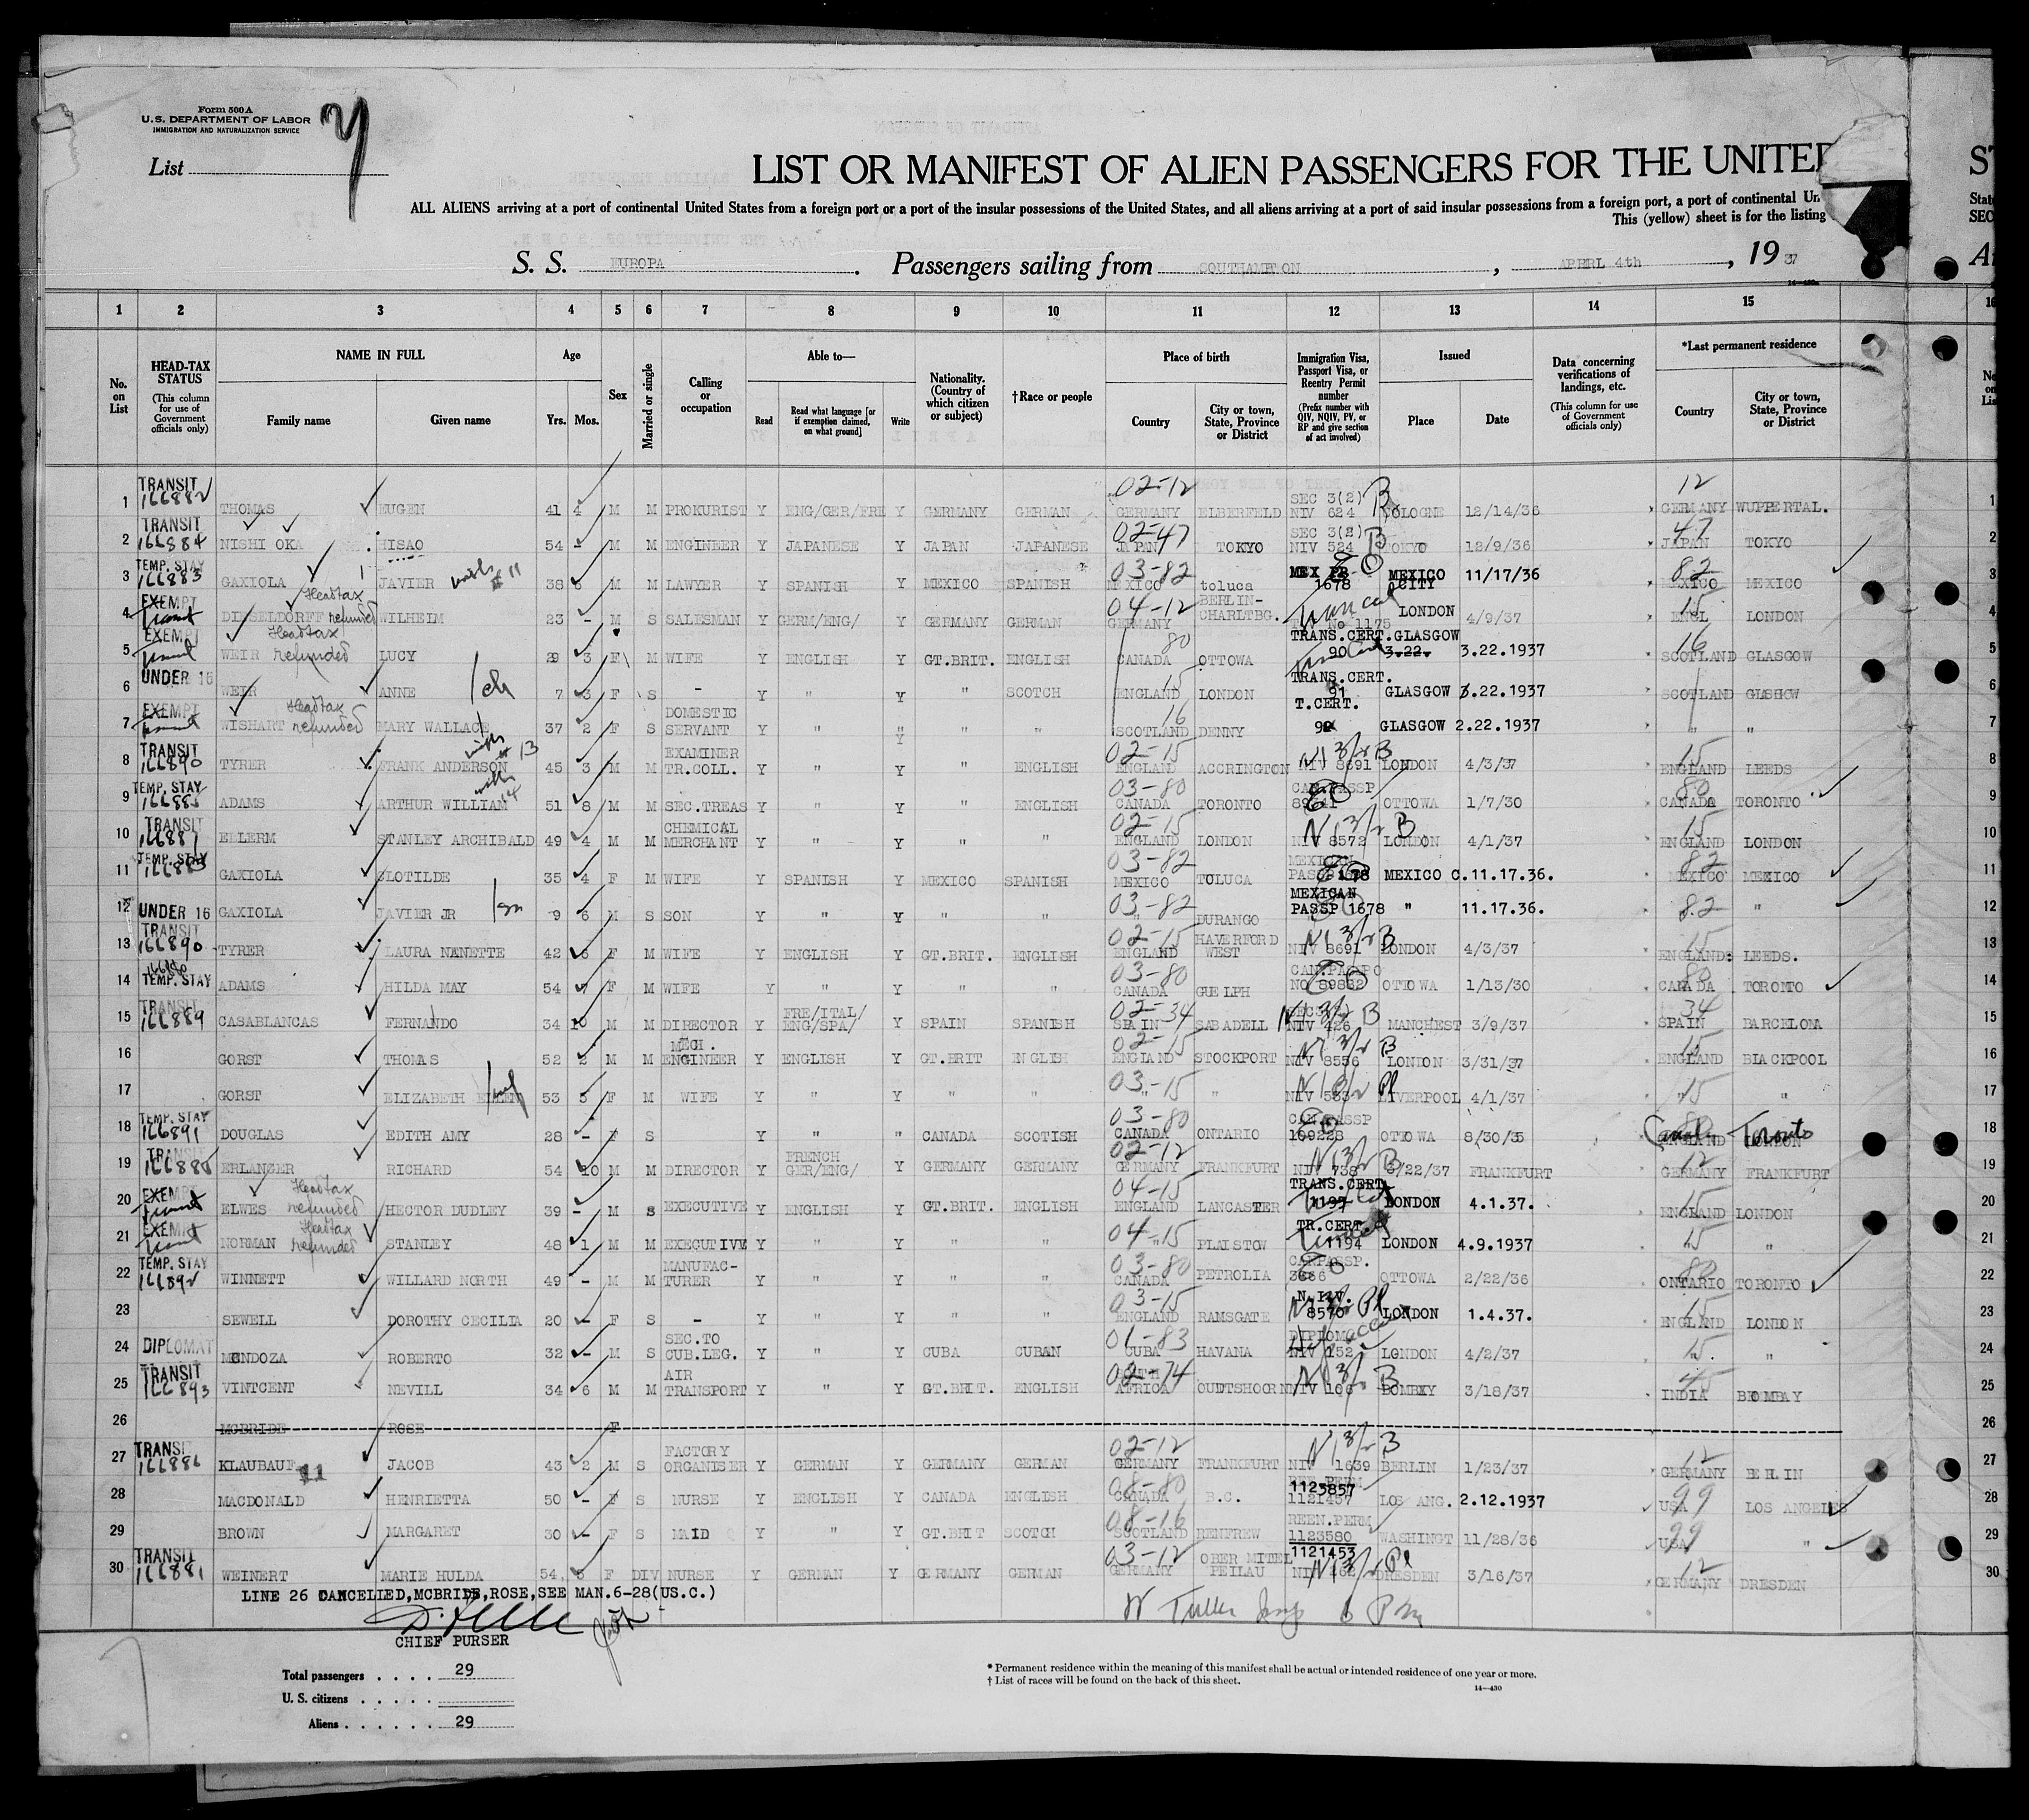 Form 500 A
U.S. DEPARTMENT OF LABOR
IMMIGRATION AND NATURALIZATION SERVICE
List
LIST OR MANIFEST OF ALIEN PASSENGERS FOR THE UNITED
ST
ALL ALIENS arriving at a port of continental United States from a foreign port or a port of the insular possessions of the United States, and all aliens arriving at a port of said insular possessions from a foreign port, a port of continental
This (yellow) sheet is for the listing
S. S. EUROPA. Passengers sailing from SOUTHAMPTON, APERL 4th, 19 37
1 2 3 4 5 6 7 8 9 10 11 12 13 14 15 16
No. on List
HEAD-TAX STATUS (This column for use of Government officials only)
NAME IN FULL Family name Given name
Age Yrs. Mos.
Sex
Married or single
Calling or occupation
Able to— Read Read what language [or if exemption claimed, on what ground] Write
Nationality. (Country of which citizen or subject)
†Race or people
Place of birth Country City or town, State, Province or District
Immigration Visa, Passport Visa, or Reentry Permit number (Prefix number with QIV, NQIV, PV, or RP and give section of act involved)
Issued Place Date
Data concerning verifications of landings, etc. (This column for use of Government officials only)
*Last permanent residence Country City or town, State, Province or District
1 TRANSIT THOMAS EUGEN 41 4 M M PROKURIST Y ENG/GER/FRE Y GERMANY GERMAN 02-12 GERMANY ELBERFELD SEC 3(2) NIV 624 COLOGNE 12/14/36 12 GERMANY WUPPERTAL.
2 TRANSIT 166884 NISHI OKA HISAO 54 - M M ENGINEER Y JAPANESE Y JAPAN JAPANESE 02-47 JAPAN TOKYO SEC 3(2) NIV 524 TOKYO 12/9/36 47 JAPAN TOKYO
3 TEMP. STAY 166883 GAXIOLA JAVIER with #11 38 6 M M LAWYER Y SPANISH Y MEXICO SPANISH 03-82 MEXICO toluca 1678 MEXICO CITY 11/17/36 82 MEXICO MEXICO
4 EXEMPT transit DUESSELDORFF Headtax refunded WILHEIM 23 - M S SALESMAN Y GERM/ENG/ Y GERMANY GERMAN 04-12 GERMANY BERLIN-CHARLTBG. No 1175 LONDON 4/9/37 15 ENGL LONDON
5 EXEMPT transit WEIR Headtax refunded LUCY 29 3 F M WIFE Y ENGLISH Y GT.BRIT. ENGLISH 80 CANADA OTTOWA TRANS.CERT. 90 GLASGOW 3.22. 3.22.1937 16 SCOTLAND GLASGOW
6 UNDER 16 WEIR ANNE /ch 7 3 F S - Y " Y " SCOTCH 15 ENGLAND LONDON TRANS.CERT. 91 GLASGOW 3.22.1937 SCOTLAND GLASGOW
7 EXEMPT transit WISHART Headtax refunded MARY WALLACE 37 2 F S DOMESTIC SERVANT Y " " " " 16 SCOTLAND DENNY T.CERT. 92 GLASGOW 2.22.1937 " "
8 TRANSIT 166890 TYRER FRANK ANDERSON with #13 45 3 M M EXAMINER TR.COLL. Y " Y " ENGLISH 02-15 ENGLAND ACCRINGTON NIV 8691 LONDON 4/3/37 15 ENGLAND LEEDS
9 TEMP. STAY ADAMS ARTHUR WILLIAM with 14 51 8 M M SEC.TREAS Y " Y " ENGLISH 03-80 CANADA TORONTO CAN.PASSP OTTOWA 1/7/30 80 CANADA TORONTO
10 TRANSIT ELLERM STANLEY ARCHIBALD 49 4 M M CHEMICAL MERCHANT Y " Y " " 02-15 ENGLAND LONDON NIV 8572 LONDON 4/1/37 15 ENGLAND LONDON
11 TEMP. STAY 166883 GAXIOLA CLOTILDE 35 4 F M WIFE Y SPANISH Y MEXICO SPANISH 03-82 MEXICO TOLUCA MEXICO C. 11.17.36. 82 MEXICO MEXICO
12 UNDER 16 GAXIOLA JAVIER JR /sn 9 6 M S SON Y " Y " " 03-82 " DURANGO MEXICAN PASSP 1678 " 11.17.36. 82 "
13 TRANSIT 166890 TYRER LAURA NANETTE 42 6 F M WIFE Y ENGLISH Y GT.BRIT. ENGLISH 02-15 ENGLAND HAVERFORD WEST NIV 8691 LONDON 4/3/37 15 ENGLAND LEEDS.
14 TEMP. STAY ADAMS HILDA MAY 54 7 F M WIFE Y " Y " " 03-80 CANADA GUELPH CAN.PASSPO NO 89882 OTTOWA 1/13/30 80 CANADA TORONTO
15 TRANSIT 166889 CASABLANCAS FERNANDO 34 10 M M DIRECTOR Y FRE/ITAL/ENG/SPA/ Y SPAIN SPANISH 02-34 SPAIN SABADELL NIV 426 MANCHEST 3/9/37 34 SPAIN BARCELONA
16 GORST THOMAS 52 2 M M MECH. ENGINEER Y ENGLISH Y GT.BRIT ENGLISH 02-15 ENGLAND STOCKPORT NIV 8556 LONDON 3/31/37 15 ENGLAND BLACKPOOL
17 GORST ELIZABETH ELLEN /wf 53 5 F M WIFE Y " Y " " 03-15 " " NIV 583 LIVERPOOL 4/1/37 15 " "
18 TEMP. STAY 166891 DOUGLAS EDITH AMY 28 - F S Y " " CANADA SCOTISH 03-80 CANADA ONTARIO CAN.PASSP 109228 OTTOWA 8/30/35 80 Canada Toronto ENGLAND LONDON
19 TRANSIT ERLANGER RICHARD 54 10 M M DIRECTOR Y FRENCH GER/ENG/ Y GERMANY GERMANY 02-12 GERMANY FRANKFURT NIV 738 /22/37 FRANKFURT 12 GERMANY FRANKFURT
20 EXEMPT transit ELWES Headtax refunded HECTOR DUDLEY 39 - M S EXECUTIVE Y ENGLISH Y GT.BRIT. ENGLISH 04-15 ENGLAND LANCASTER TRANS.CERT. 1197 LONDON 4.1.37. 15 ENGLAND LONDON
21 EXEMPT transit NORMAN Headtax refunded STANLEY 48 1 M M EXECUTIVE Y " Y " " 04-15 " PLAISTOW TR.CERT. 1194 LONDON 4.9.1937 15 " "
22 TEMP. STAY 166892 WINNETT WILLARD NORTH 49 - M M MANUFAC-TURER Y " Y " " 03-80 CANADA PETROLIA CAN.PASSP. OTTOWA 2/22/36 80 ONTARIO TORONTO
23 SEWELL DOROTHY CECILIA 20 - F S - Y " Y " " 03-15 ENGLAND RAMSGATE N.IV. 8570 LONDON 1.4.37. 15 ENGLAND LONDON
24 DIPLOMAT MENDOZA ROBERTO 32 - M S SEC.TO CUB.LEG. Y " Y CUBA CUBAN 01-83 CUBA HAVANA DIPLOMA NIV 152 LONDON 4/2/37 15 " "
25 TRANSIT 166893 VINTCENT NEVILL 34 6 M M AIR TRANSPORT Y " Y GT.BRIT. ENGLISH 02-74 AFRICA OUDTSHOORN NIV 106 BOMBAY 3/18/37 45 INDIA BOMBAY
26 MCBRIDE ROSE F
27 TRANSIT 166886 KLAUBAUF 11 JACOB 43 2 M S FACTORY ORGANISER Y GERMAN Y GERMANY GERMAN 02-12 GERMANY FRANKFURT NIV 1639 BERLIN 1/23/37 12 GERMANY BERLIN
28 MACDONALD HENRIETTA 50 - F S NURSE Y ENGLISH Y CANADA ENGLISH 08-80 CANADA B.C. REE.PERM 1123857 1121457 LOS ANG. 2.12.1937 99 USA LOS ANGELES
29 BROWN MARGARET 30 - F S MAID Y " Y GT.BRIT SCOTCH 08-16 SCOTLAND RENFREW REEN.PERM 1123580 1121453 WASHINGT 11/28/36 99 USA "
30 TRANSIT 166881 WEINERT MARIE HULDA 54 5 F DIV NURSE Y GERMAN Y GERMANY GERMAN 03-12 GERMANY OBER MITEL PEILAU NIV 262 DRESDEN 3/16/37 12 GERMANY DRESDEN
LINE 26 CANCELLED,MCBRIDE,ROSE,SEE MAN.6-28(US.C.)
CHIEF PURSER
Total passengers . . . . 29
U. S. citizens . . . . .
Aliens . . . . . . 29
* Permanent residence within the meaning of this manifest shall be actual or intended residence of one year or more.
† List of races will be found on the back of this sheet.
14—430